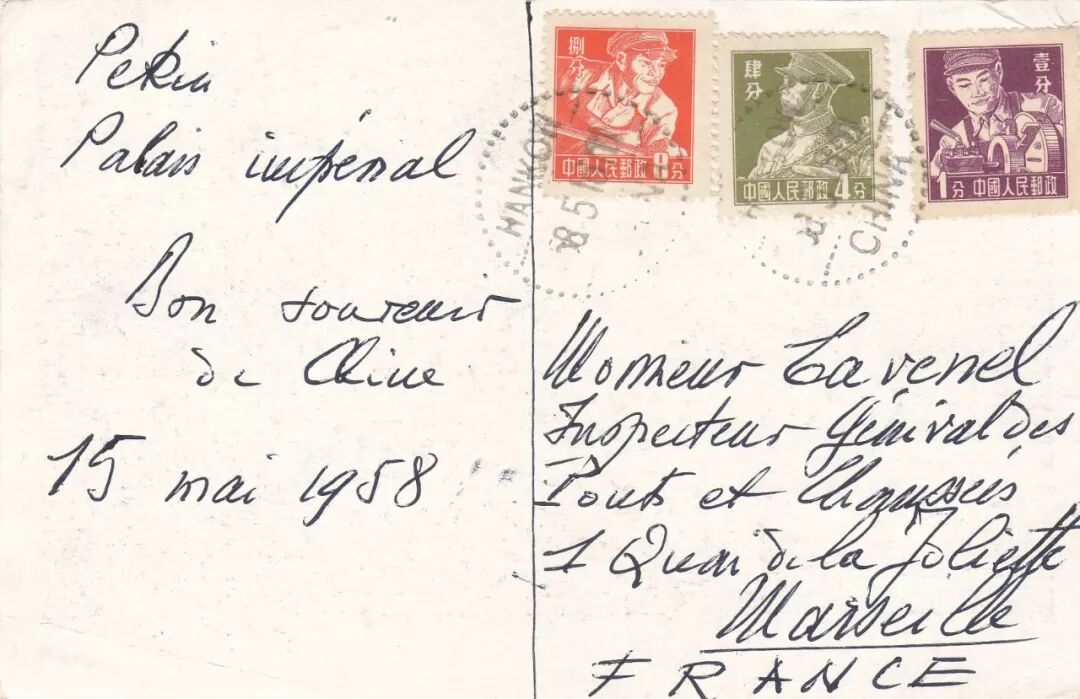 Pekin
Palais impérial
Bon souvenir
de Chine
15 mai 1958
捌分
中國人民郵政 8分
肆分
中國人民郵政 4分
壹分
1分 中國人民郵政
HANKOW
CHINA
Monsieur Lavenel
Inspecteur Général des
Ponts et Chaussées
1 Quai de la Joliette
Marseille
FRANCE